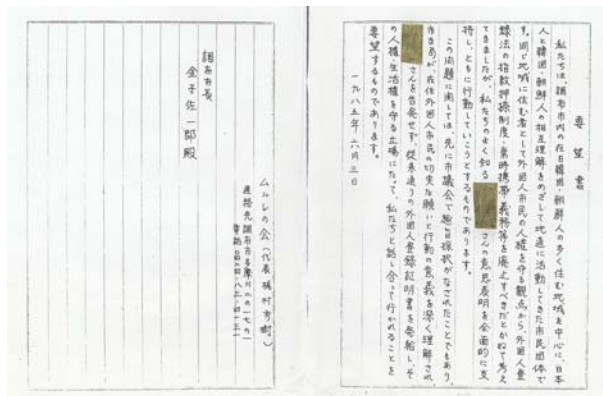 要望書
私たちは、調布市内の在日韓国・朝鮮人の多く住む地域を中心に、日本
人と韓国・朝鮮人の相互理解をめざして地道に活動してきた市民団体で
す。同じ地域に住む者として外国人市民の人権を守る観点から、外国人登
録法の指紋押捺制度・常時携帯義務等を廃止すべきだとかねて考え
てきましたが、私たちのよく知る さんの意思表明を全面的に支
持し、ともに行動していこうとするものであります。
この問題に関しては、先に市議会で趣旨採択がなされたことでもあり、
市当局が、在住外国人市民の切実な願いと行動の意義を深く理解され、
さんを告発せず、従来通りの外国人登録証明書を発給し、そ
の人権・生活権を守る立場にたって、私たちと話し合って行かれることを
要望するものであります。
一九八五年六月三日
調布市長
金子佐一郎殿
ムルレの会(代表
連絡先調布市多摩川
電話